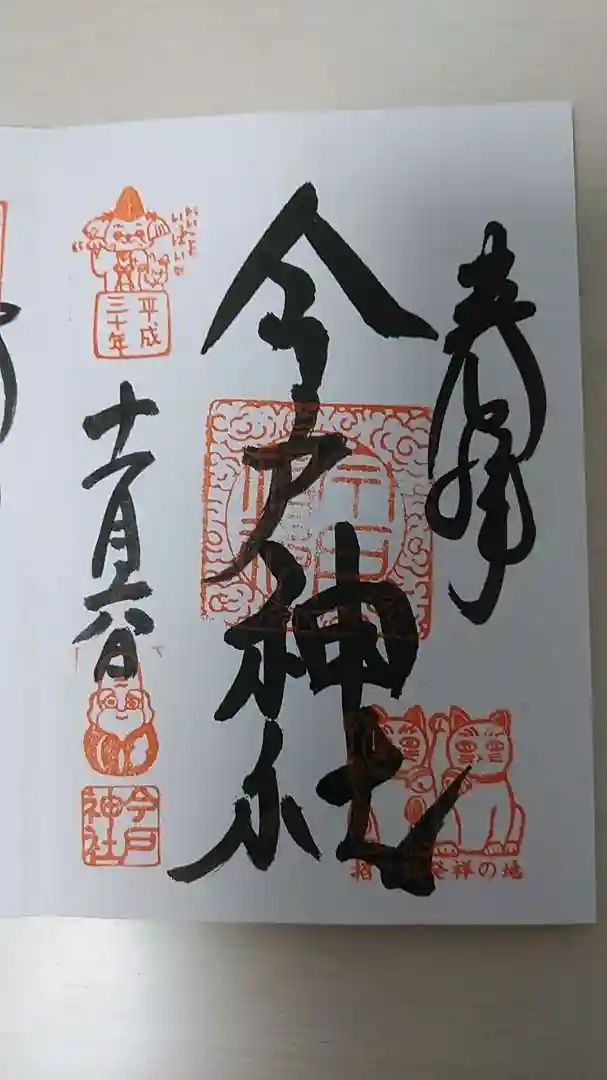 奉拝
今戸神社
招 発祥の地
平成
三十年
十一月六日
今戸
神社